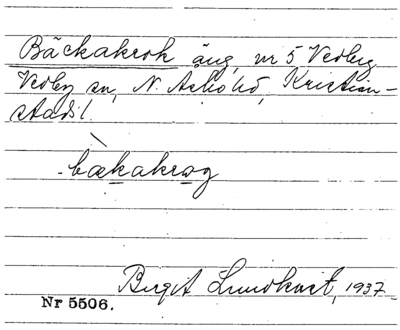 Bäckakrok äng, nr 5 Vedby
Vedby sn, N. Åsbo hd, Kristian-
stads l.
bækakrog
Birgit Lundkvist, 1937
Nr 5506.